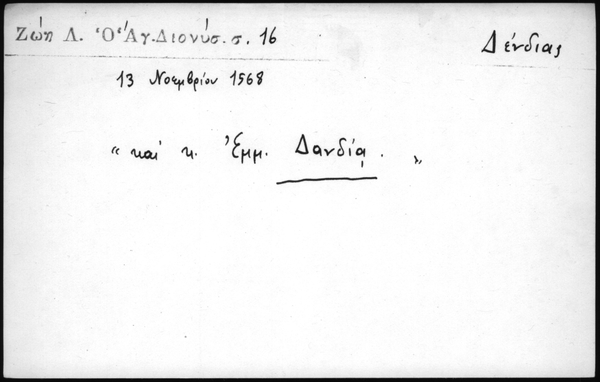 Ζώη Λ. Ὁ Ἅγ. Διονύσ. σ. 16
Δένδιας
13 Νοεμβρίου 1568
“ καί κ. Ἐμμ. Δανδίᾳ . ”